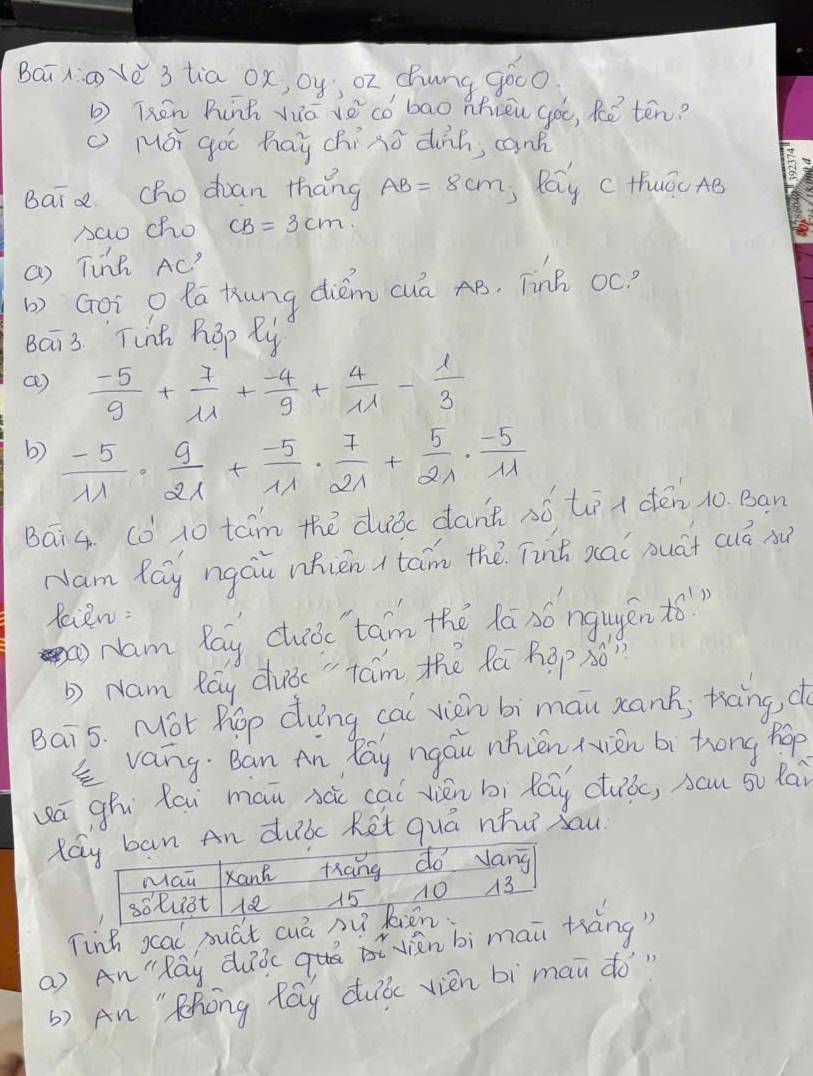 Bài 1: a) Vẽ 3 tia Ox, Oy, Oz chung gốc O.
b) Trên hình vừa vẽ có bao nhiêu góc, kể tên?
c) Mỗi góc hãy chỉ rõ đỉnh, cạnh
Bài 2. Cho đoạn thẳng AB = 8cm, lấy C thuộc AB
sao cho CB = 3cm.
a) Tính AC?
b) Gọi O là trung điểm của AB. Tính OC?
Bài 3. Tính hợp lý
a) -5/9 + 7/11 + -4/9 + 4/11 - 1/3
b) -5/11 . 9/21 + -5/11 . 7/21 + 5/21 . -5/11
Bài 4. Có 10 tấm thẻ được đánh số từ 1 đến 10. Bạn
Nam lấy ngẫu nhiên 1 tấm thẻ. Tính xác suất của sự
kiện:
a) Nam lấy được "tấm thẻ là số nguyên tố"
b) Nam lấy được "tấm thẻ là hợp số"
Bài 5. Một hộp đựng các viên bi màu xanh, trắng, đỏ
vàng. Bạn An lấy ngẫu nhiên 1 viên bi trong hộp
và ghi lại màu sắc các viên bi lấy được, sau 50 lần
lấy bạn An được kết quả như sau:
Màu Xanh trắng đỏ Vàng
Số lượt 12 15 10 13
Tính xác suất của sự kiện:
a) An "lấy được viên bi màu trắng"
b) An "không lấy được viên bi màu đỏ"
392374